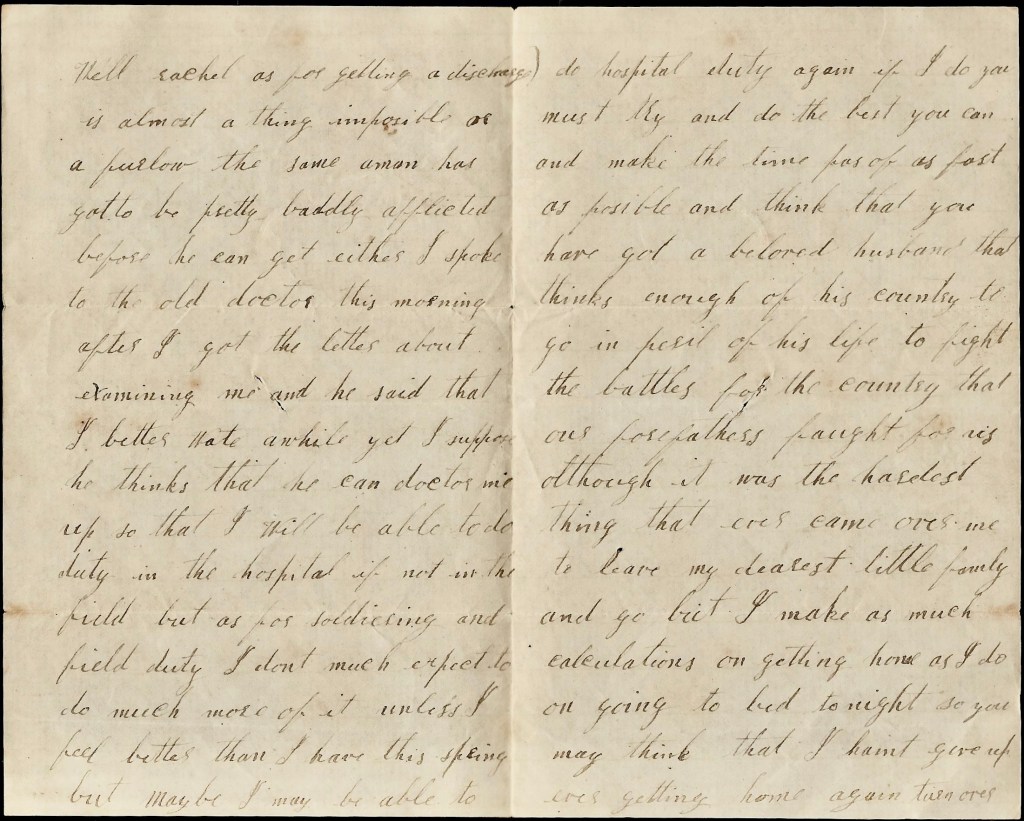 Well rachel as for getting a discharge)
is almost a thing imposible or
a furlow the same aman has
gotto be pretty baddly afflicted
before he can get either I spoke
to the old doctor this morning
after I got the letter about
examining me and he said that
I better wate awhile yet I suppose
he thinks that he can doctor me
up so that I will be able to do
duty in the hospital if not in the
field but as for soldiering and
field duty I dont much expect to
do much more of it unless I
feel better than I have this spring
but maybe I may be able to
do hospital duty again if I do you
must try and do the best you can
and make the time pas of as fast
as posible and think that you
have got a beloved husband that
thinks enough of his country to
go in peril of his life to fight
the battles for the country that
our forefathers faught for us
although it was the hardest
thing that ever came over me
to leave my dearest little family
and go but I make as much
calculations on getting home as I do
on going to bed to night so you
may think that I haint give up
ever getting home again turn over